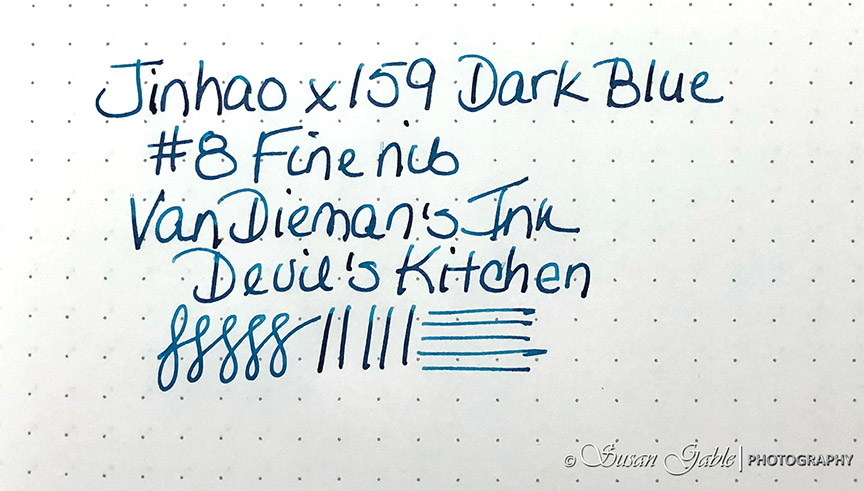 Jinhao x159 Dark Blue
#8 Fine nib
Van Dieman's Ink
Devil's Kitchen
© Susan Gable | PHOTOGRAPHY